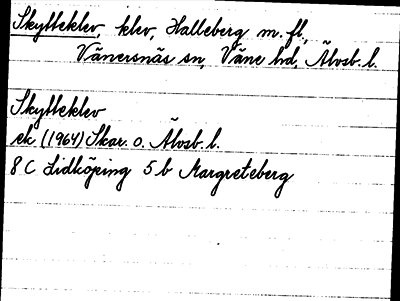 Skytteklev, klev, Halleberg m. fl,
Vänersnäs sn, Väne hd, Älvsb. l.
Skytteklev
ek (1964) Skar. o. Älvsb. l.
8 C Lidköping 5 b Margreteberg